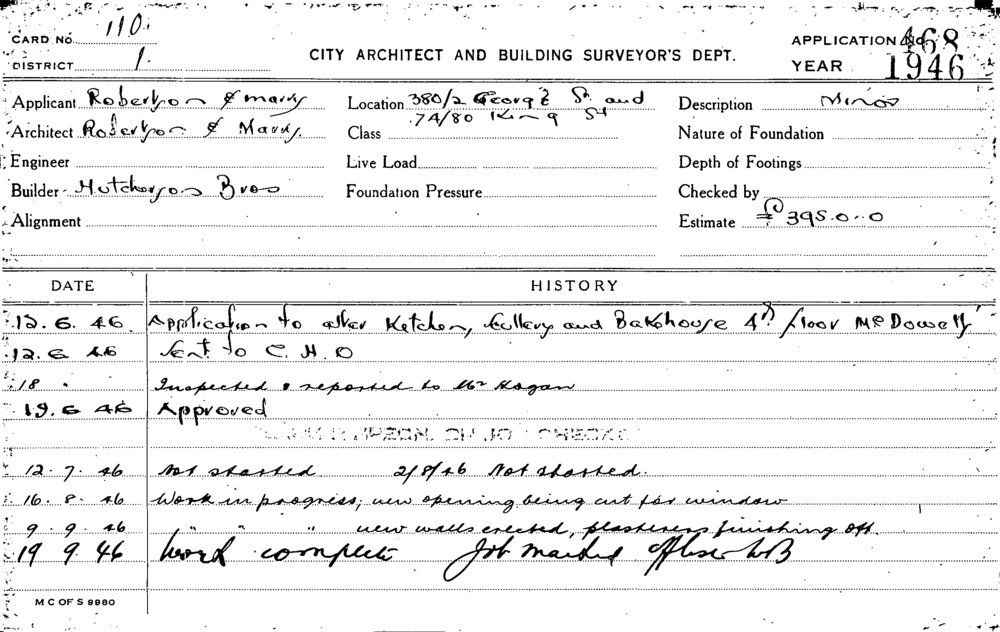 CARD No. 110.
DISTRICT 1.
CITY ARCHITECT AND BUILDING SURVEYOR'S DEPT.
APPLICATION No. 468
YEAR 1946
Applicant Robertson & Marks
Location 380/2 George St. and
74/80 King St
Description Minor
Architect Robertson & Marks
Class
Nature of Foundation
Engineer
Live Load
Depth of Footings
Builder Hutcherson Bros
Foundation Pressure
Checked by
Alignment
Estimate £395.0.0
DATE HISTORY
12.6.46 Application to alter Kitchen, Scullery and Bakehouse 4th floor McDowells'
12.6.46 Sent to C.H.O
18 " Inspected & reported to Mr Hogan
19.6.46 Approved
12.7.46 Not started 2/8/46 Not started.
16.8.46 Work in progress; new opening being cut for window
9.9.46 " " " new walls erected, plasterers finishing off.
19 9.46 Work complete Job marked off
M C OF S 9980